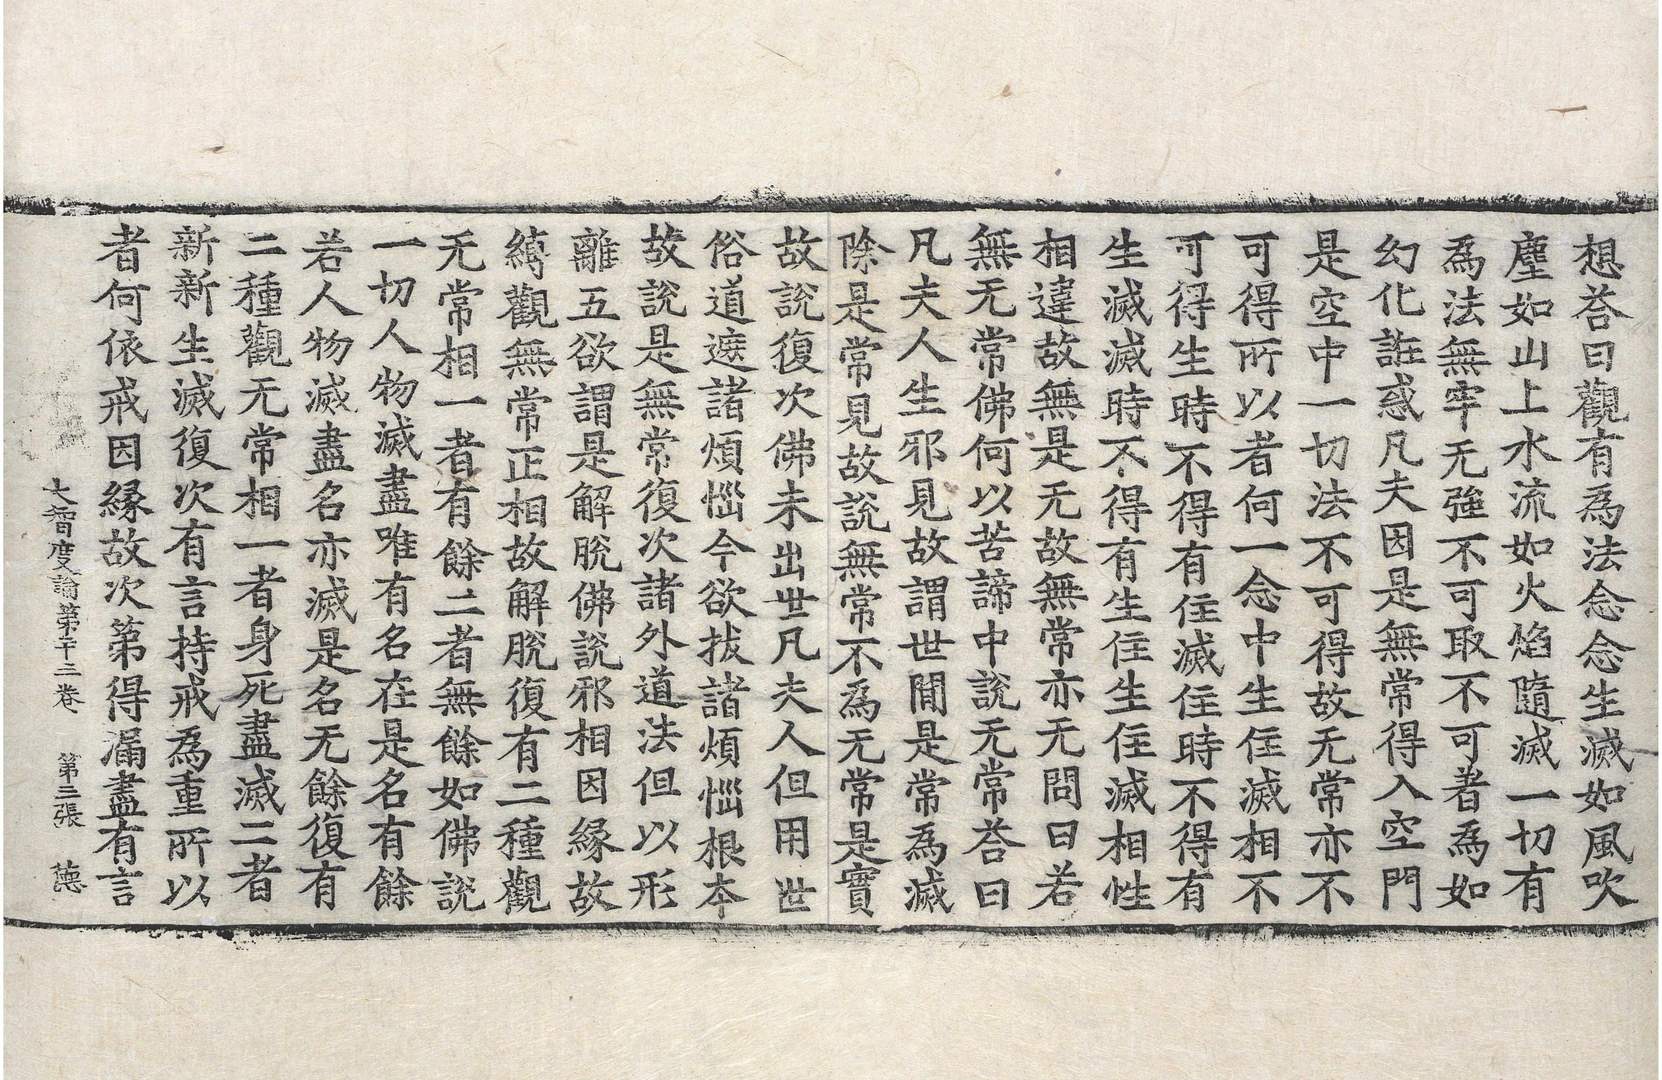 想荅曰觀有為法念念生滅如風吹
塵如山上水流如火焰隨滅一切有
為法無牢无強不可取不可著為如
幻化誑惑凡夫因是無常得入空門
是空中一切法不可得故无常亦不
可得所以者何一念中生住滅相不
可得生時不得有住滅住時不得有
生滅滅時不得有生住生住滅相性
相違故無是无故無常亦无問曰若
無无常佛何以苦諦中說无常荅曰
凡夫人生邪見故謂世間是常為滅
除是常見故說無常不為无常是實
故說復次佛未出世凡夫人但用世
俗道遮諸煩惱今欲拔諸煩惱根本
故說是無常復次諸外道法但以形
離五欲謂是解脫佛說邪相因緣故
縛觀無常正相故解脫復有二種觀
无常相一者有餘二者無餘如佛說
一切人物滅盡唯有名在是名有餘
若人物滅盡名亦滅是名无餘復有
二種觀无常相一者身死盡滅二者
新新生滅復次有言持戒為重所以
者何依戒因緣故次第得漏盡有言
大智度論第二十三卷 第三張 德